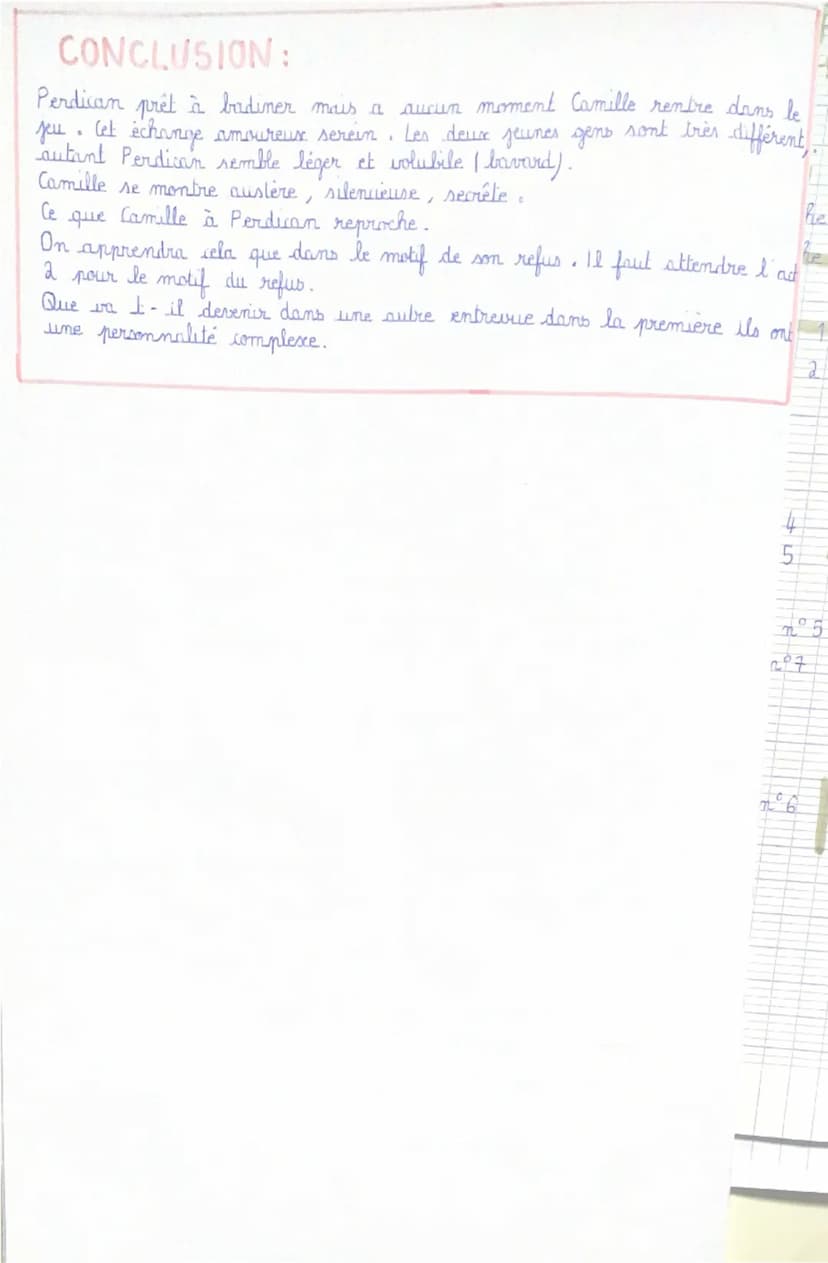 CONCLUSION :
Perdican prêt à badiner mais a aucun moment Camille rentre dans le
jeu. Cet échange amoureux serein. Les deux jeunes gens sont très différent,
autant Perdican semble léger et volubile (bavard).
Camille se montre austère, silencieuse, secrête.
Ce que Camille à Perdican reproche.
On apprendra cela que dans le motif de son refus. Il faut attendre l'act
2 pour le motif du refus.
Que va t-il devenir dans une autre entrevue dans la première ils ont
une personnalité complexe.
he
he
1
2
4
5
n°5
n°7
n°6